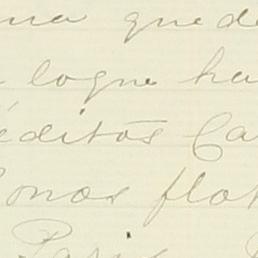 na quede
logne ha
éditos Ca
onos flot
Paris